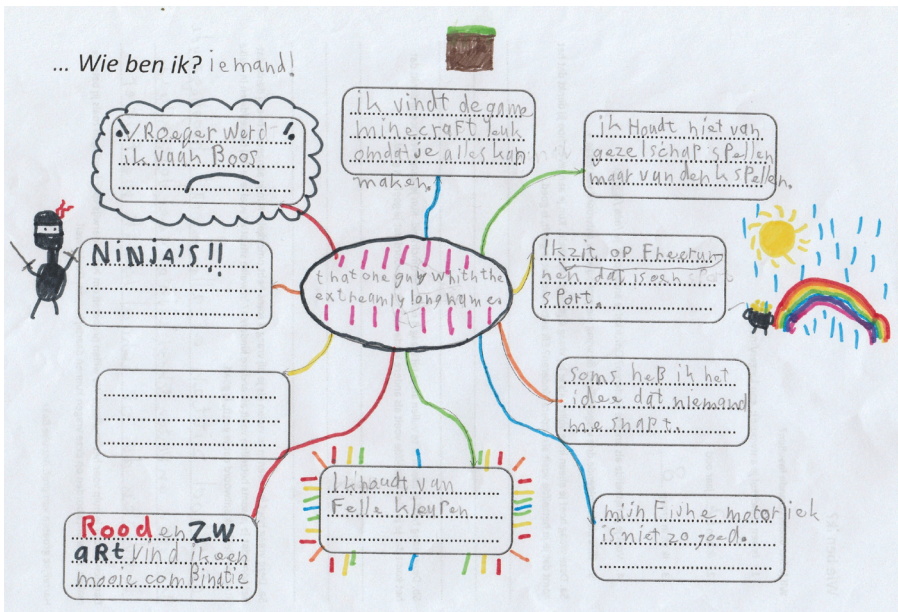 ... Wie ben ik? iemand!
ik vindt de game
minecraft leuk
omdat je alles kan
maken.
! Vroeger werd !
ik vaan Boos
ik Houdt niet van
gezelschap spellen
maar van denk spellen.
NiNjA'S!!
that one guy whith the
extreamly lang names
Ik zit op Freerun
nen dat is een
sport.
soms heb ik het
idee dat niemand
me snapt.
Ik houdt van
Felle kleuren
mijn Fijne motoriek
is niet zo goed.
Rood en ZW
aRt vind ik een
mooie comBinatie